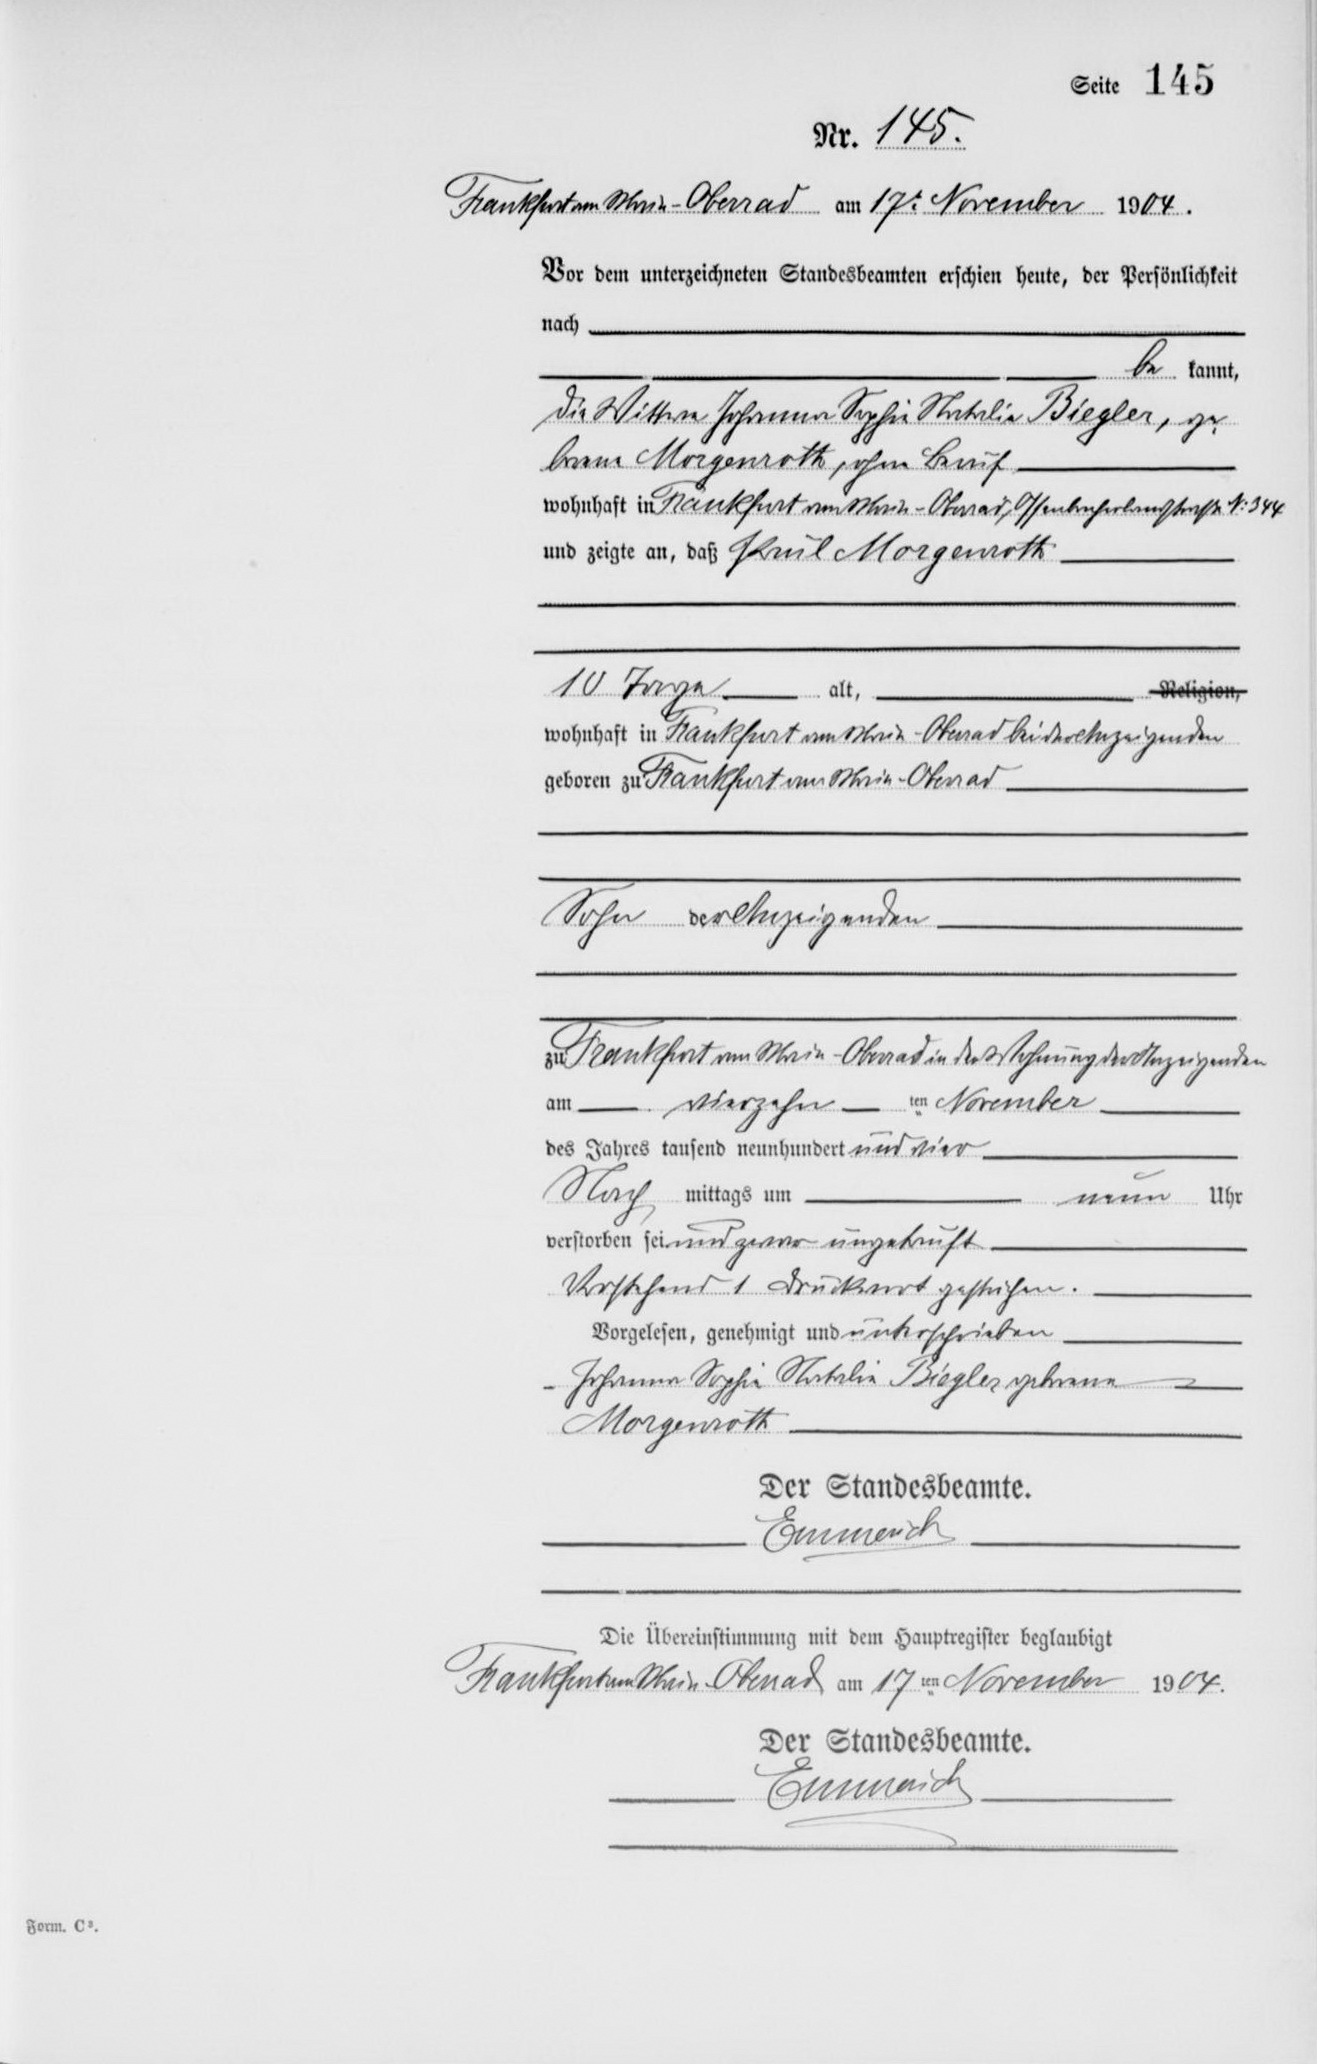 Seite 145
Nr. 145.
Frankfurt am Main-Oberrad am 17t. November 1904.
Vor dem unterzeichneten Standesbeamten erschien heute, der Persönlichkeit
nach
be kannt,
die Wittwe Johanna Sophie Natalie Biegler, ge-
borene Morgenroth, ohne Beruf
wohnhaft in Frankfurt am Main-Oberrad, Offenbacherlandstraße N: 344
und zeigte an, daß Paul Morgenroth
10 Tage alt, Religion,
wohnhaft in Frankfurt am Main-Oberrad bei der Anzeigenden
geboren zu Frankfurt am Main-Oberrad
Sohn der Anzeigenden
zu Frankfurt am Main-Oberrad in der Wohnung der Anzeigenden
am vierzehn ten November
des Jahres tausend neunhundert und vier
Nach mittags um neun Uhr
verstorben sei und zwar ungetauft
Vorstehend 1 Druckwort gestrichen.
Vorgelesen, genehmigt und unterschrieben
Johanna Sophie Natalie Biegler geborene
Morgenroth
Der Standesbeamte.
Emmerich
Die Übereinstimmung mit dem Hauptregister beglaubigt
Frankfurt am Main-Oberrad am 17ten November 1904.
Der Standesbeamte.
Emmerich
Form. C³.